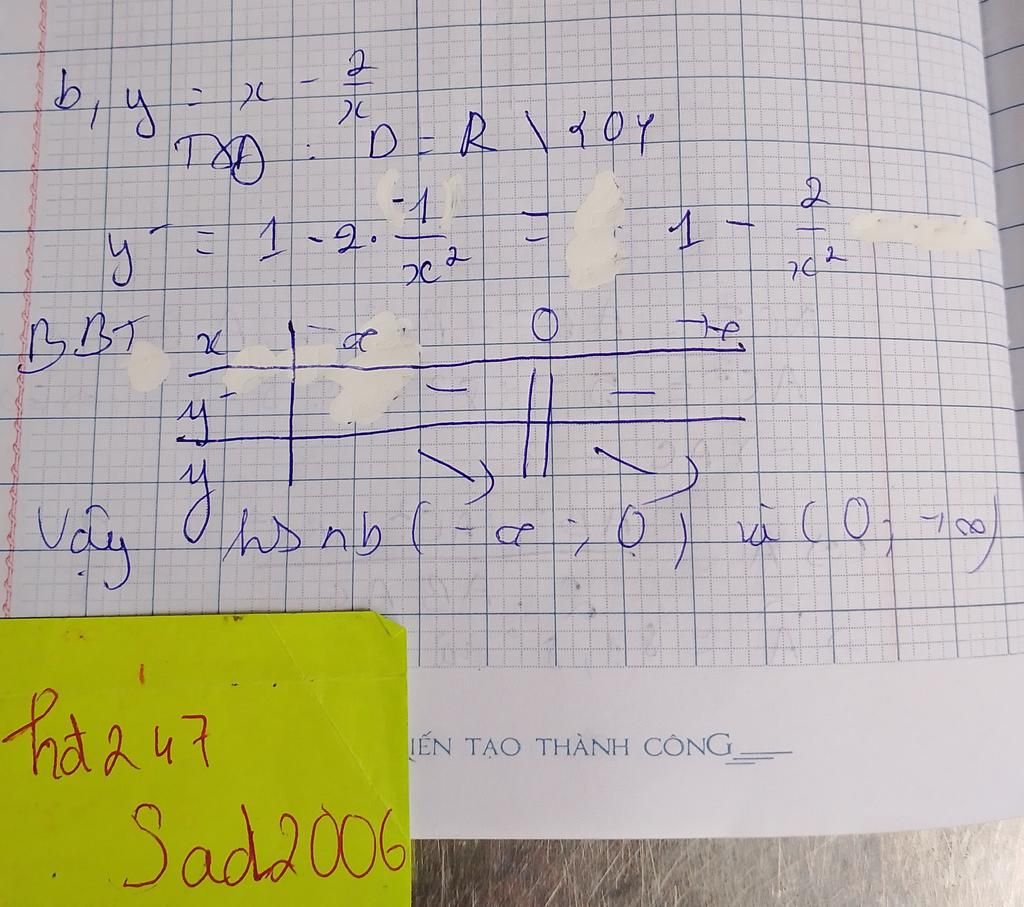 b, y = x - 2/x
TXĐ : D = R \ {0}
y' = 1 - 2 . (-1)/x² = 1 - 2/x²
BBT x -∞ 0 +∞
y' - || -
y ↘ || ↘
Vậy hs nb (-∞ ; 0) và (0; +∞)
hđ247
Sad2006
IẾN TẠO THÀNH CÔNG